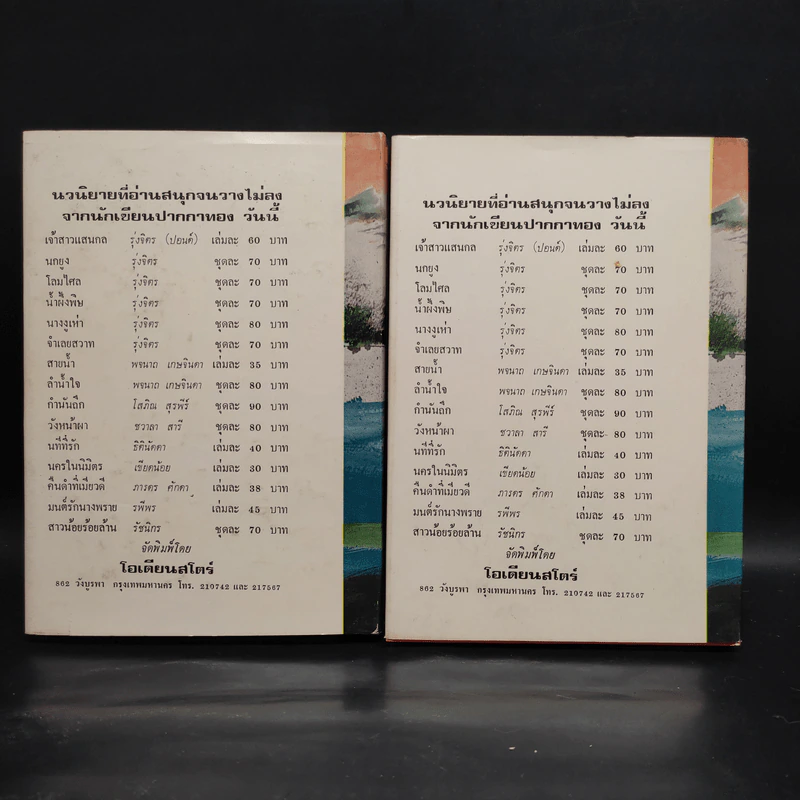 นวนิยายที่อ่านสนุกจนวางไม่ลง
จากนักเขียนปากกาทอง วันนี้
เจ้าสาวแสนกล รุ่งจิตร (ปอนด์) เล่มละ 60 บาท
นกยูง รุ่งจิตร ชุดละ 70 บาท
โลมไศล รุ่งจิตร ชุดละ 70 บาท
น้ำผึ้งพิษ รุ่งจิตร ชุดละ 70 บาท
นางงูเห่า รุ่งจิตร ชุดละ 80 บาท
จำเลยสวาท รุ่งจิตร ชุดละ 70 บาท
สายน้ำ พจนาถ เกษจินดา เล่มละ 35 บาท
ลำน้ำใจ พจนาถ เกษจินดา ชุดละ 80 บาท
กำนันถึก โสภิณ สุรพีร์ ชุดละ 90 บาท
วังหน้าผา ชวาลา สารี ชุดละ 80 บาท
นทีที่รัก ธิตินัดดา เล่มละ 40 บาท
นครในนิมิตร เขียดน้อย เล่มละ 30 บาท
คืนดำที่เมียวดี ภารดร ศักดา เล่มละ 38 บาท
มนต์รักนางพราย รพีพร เล่มละ 45 บาท
สาวน้อยร้อยล้าน รัชนิกร ชุดละ 70 บาท
จัดพิมพ์โดย
โอเดียนสโตร์
862 วังบูรพา กรุงเทพมหานคร โทร. 210742 และ 217567
นวนิยายที่อ่านสนุกจนวางไม่ลง
จากนักเขียนปากกาทอง วันนี้
เจ้าสาวแสนกล รุ่งจิตร (ปอนด์) เล่มละ 60 บาท
นกยูง รุ่งจิตร ชุดละ 70 บาท
โลมไศล รุ่งจิตร ชุดละ 70 บาท
น้ำผึ้งพิษ รุ่งจิตร ชุดละ 70 บาท
นางงูเห่า รุ่งจิตร ชุดละ 80 บาท
จำเลยสวาท รุ่งจิตร ชุดละ 70 บาท
สายน้ำ พจนาถ เกษจินดา เล่มละ 35 บาท
ลำน้ำใจ พจนาถ เกษจินดา ชุดละ 80 บาท
กำนันถึก โสภิณ สุรพีร์ ชุดละ 90 บาท
วังหน้าผา ชวาลา สารี ชุดละ 80 บาท
นทีที่รัก ธิตินัดดา เล่มละ 40 บาท
นครในนิมิตร เขียดน้อย เล่มละ 30 บาท
คืนดำที่เมียวดี ภารดร ศักดา เล่มละ 38 บาท
มนต์รักนางพราย รพีพร เล่มละ 45 บาท
สาวน้อยร้อยล้าน รัชนิกร ชุดละ 70 บาท
จัดพิมพ์โดย
โอเดียนสโตร์
862 วังบูรพา กรุงเทพมหานคร โทร. 210742 และ 217567